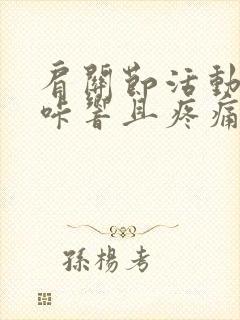 肩關節活動
咔響且疼痛
孫楊考